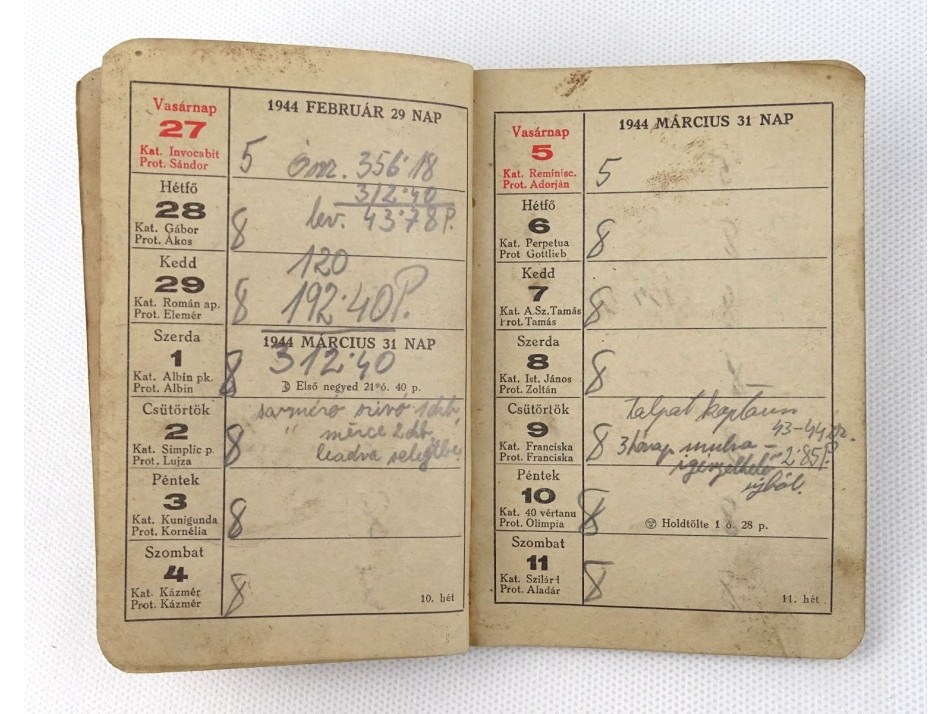 1944 FEBRUÁR 29 NAP
Vasárnap
27
Kat. Invocabit
Prot. Sándor
5 Ösz. 356·18
312·40
Hétfő
28
Kat. Gábor
Prot. Ákos
8 lev. 43·78 P.
Kedd
29
Kat. Román ap.
Prot. Elemér
120
8 192·40 P.
1944 MÁRCIUS 31 NAP
Szerda
1
Kat. Albin pk.
Prot. Albin
312·40
8
Első negyed 21 ó. 40 p.
Csütörtök
2
Kat. Simplic p.
Prot. Lujza
8
sarméró szivó 1 db.
" mérce 2 db.
leadva
Péntek
3
Kat. Kunigunda
Prot. Kornélia
8
Szombat
4
Kat. Kázmér
Prot. Kázmér
8
10. hét
1944 MÁRCIUS 31 NAP
Vasárnap
5
Kat. Reminisc.
Prot. Adorján
5
Hétfő
6
Kat. Perpetua
Prot Gottlieb
8
Kedd
7
Kat. A.Sz.Tamás
Prot. Tamás
8
Szerda
8
Kat. Ist. János
Prot. Zoltán
8
Csütörtök
9
Kat. Franciska
Prot. Franciska
Talpat kaptam
43-44
8 3 hónap munka -
2·85 P.
újból.
Péntek
10
Kat. 40 vértanu
Prot. Olimpia
8
Holdtölte 1 ó. 28 p.
Szombat
11
Kat. Szilárd
Prot. Aladár
8
11. hét